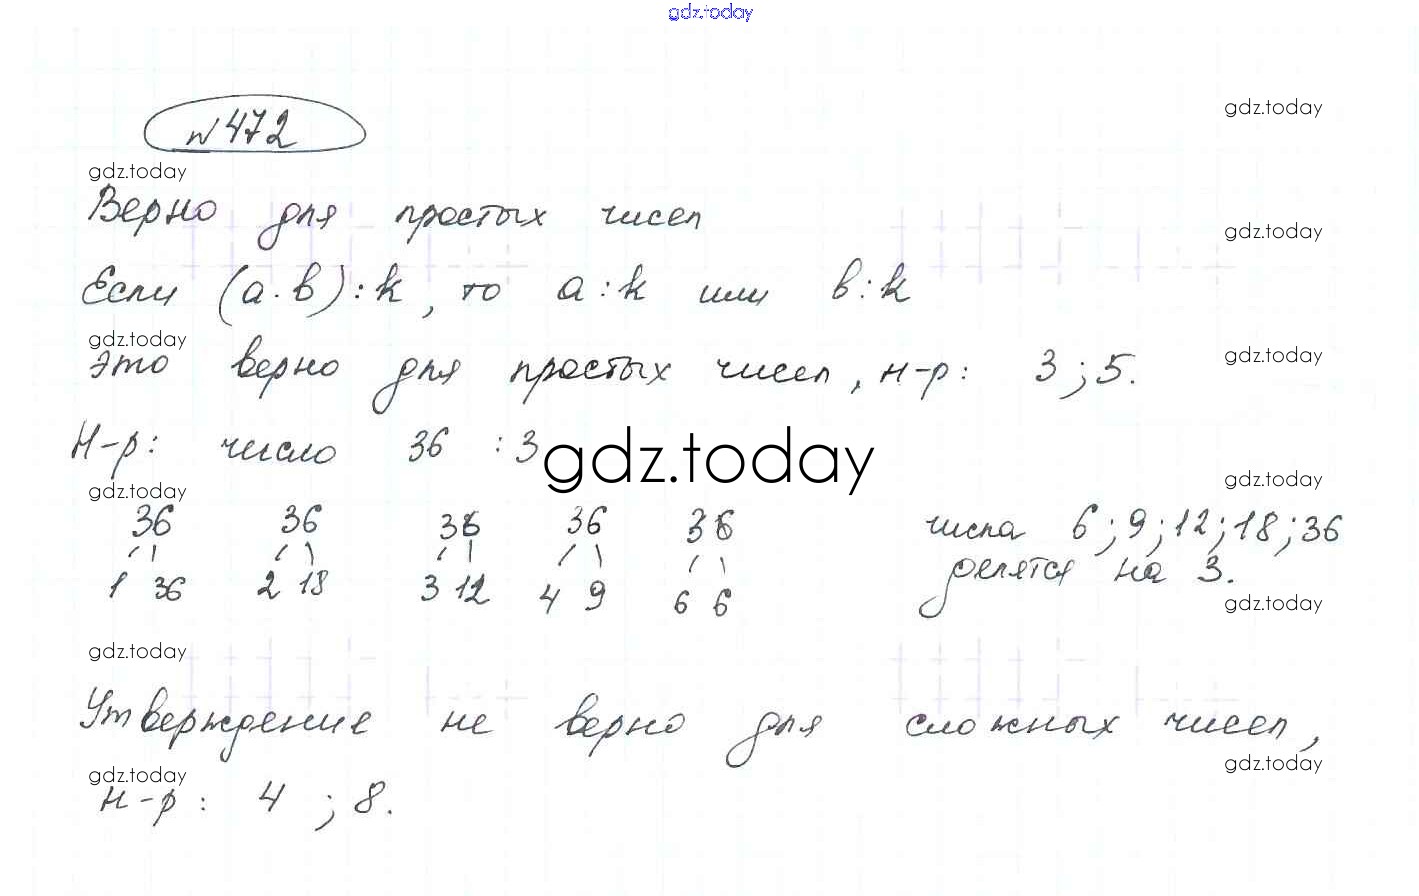 gdz.today
№ 472
gdz.today
gdz.today
Верно для простых чисел
gdz.today
Если (а·в):k, то а:k или в:k
gdz.today
gdz.today
Это верно для простых чисел, н-р: 3; 5.
Н-р: число 36 :3
gdz.today
gdz.today
gdz.today
36 36 36 36 36
1 36 2 18 3 12 4 9 6 6
числа 6; 9; 12; 18; 36
делятся на 3.
gdz.today
gdz.today
Утверждение не верно для сложных чисел,
gdz.today
gdz.today
н-р: 4 ; 8.